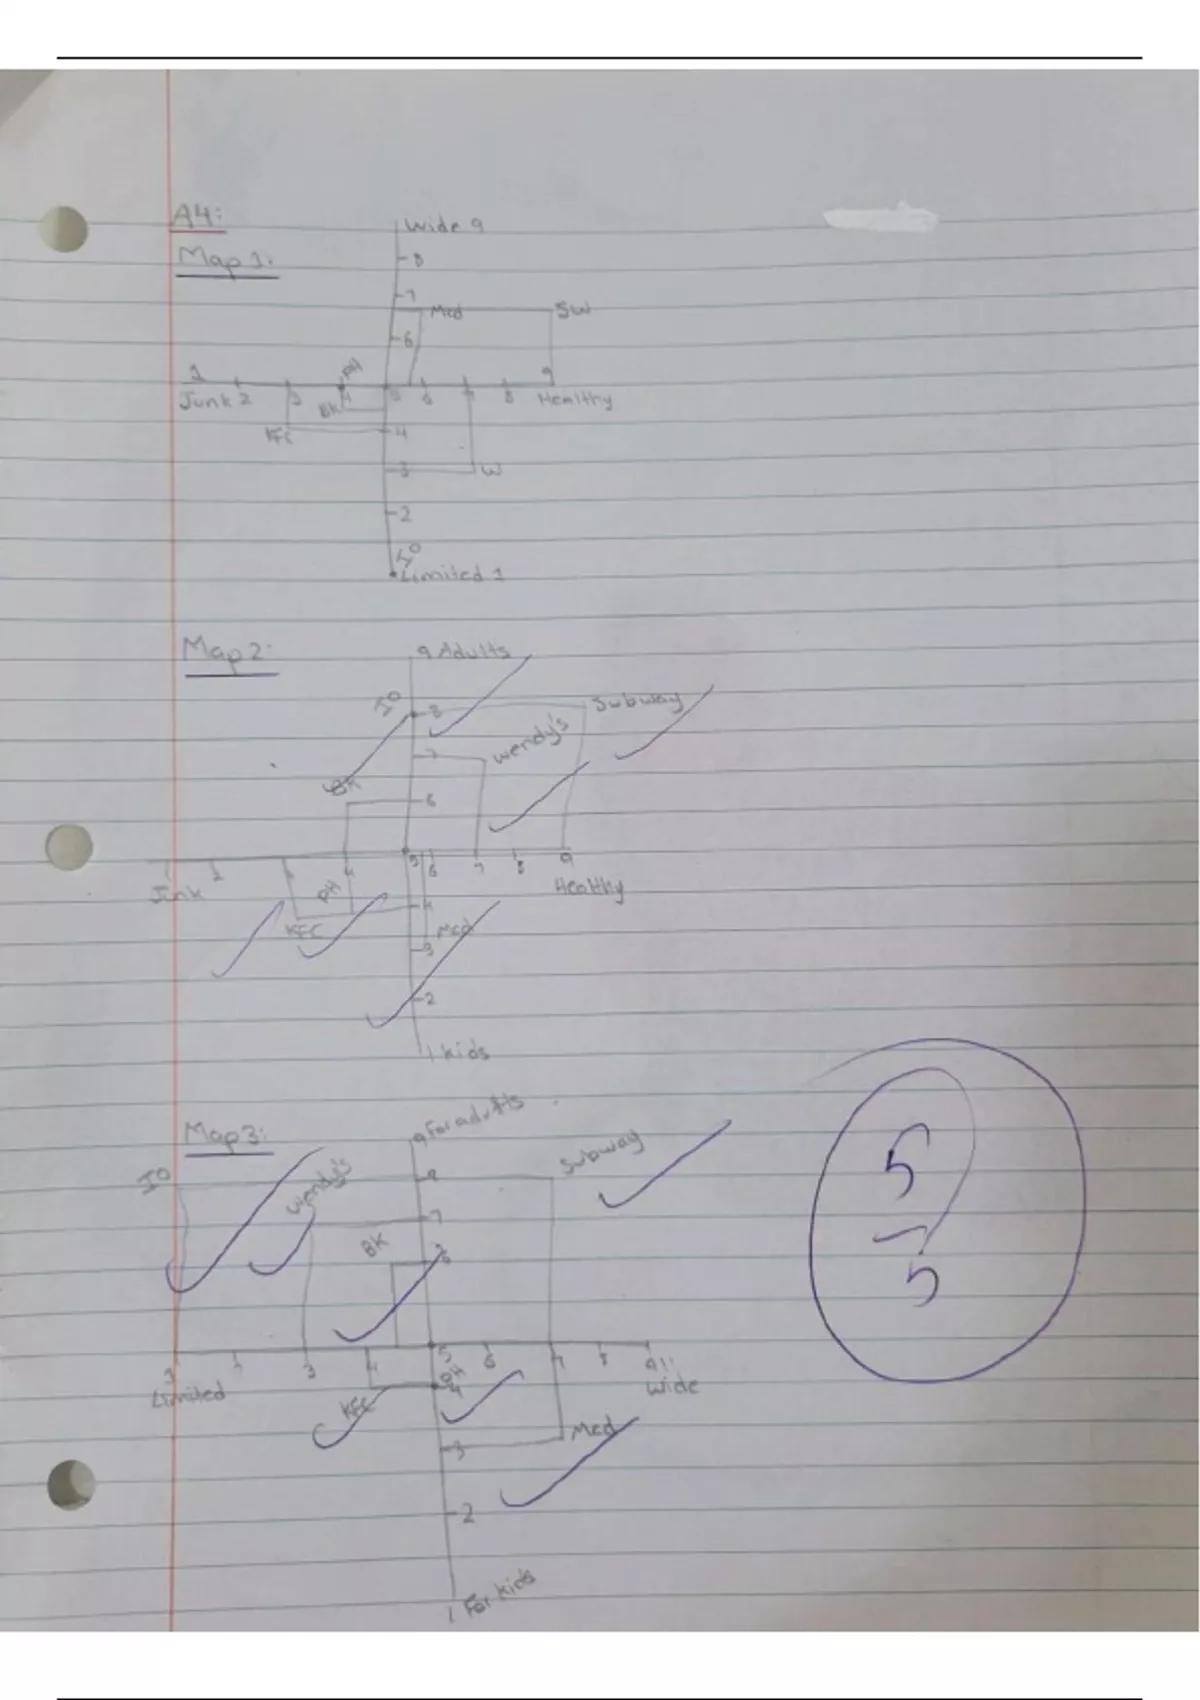 A4:
Wide 9
Map 1:
8
7
Mcd
SW
6
PH
1
9
Junk 2
3
4
5
6
7
8
Healthy
BK
KFC
4
3
W
2
IO
Limited 1
Map 2:
9 Adults
IO
8
Subway
7
Wendy's
BK
6
5
6
7
8
9
Junk
2
3
4
Healthy
PH
4
KFC
Mcd
3
2
1 kids
Map 3:
9 For adults
IO
8
Subway
Wendy's
7
BK
6
5
6
7
8
9
3
4
Limited
PH
4
Wide
KFC
Mcd
3
2
1 For kids
5
5